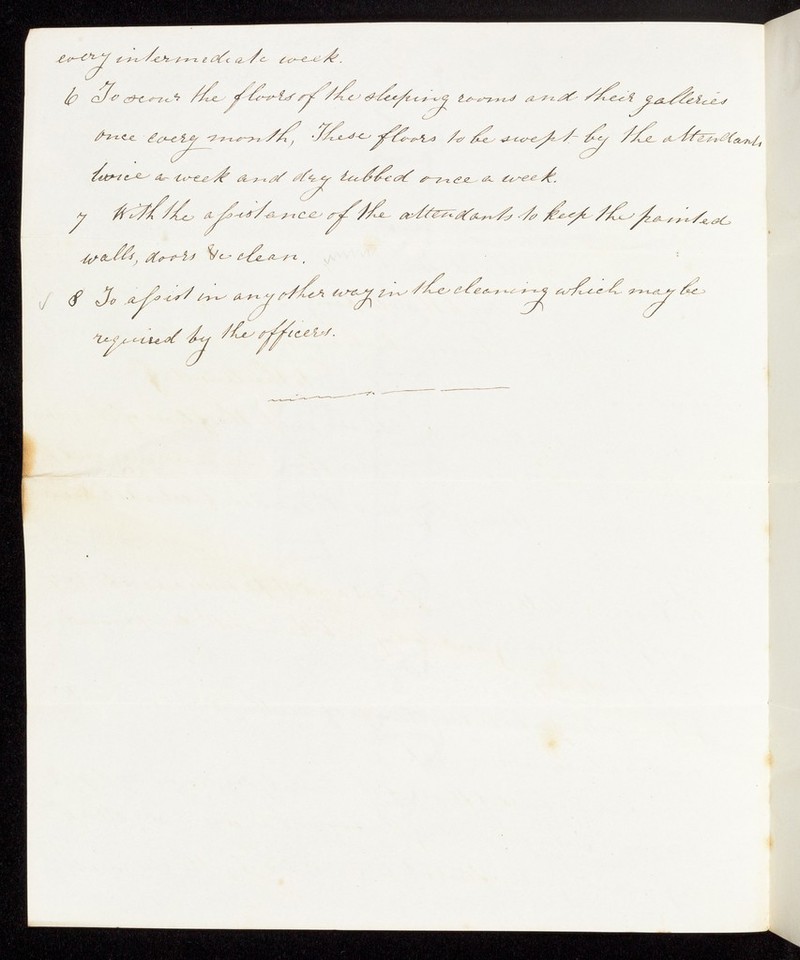 every intermediate week.
6 To scour the floors of the sleeping rooms and their galleries
once every month, These floors to be swept by the attendants
twice a week and dry rubbed once a week.
7 With the assistance of the attendants to keep the painted
walls, doors &c clean.
8 To assist in any other way in the cleaning which may be
required by the officers.